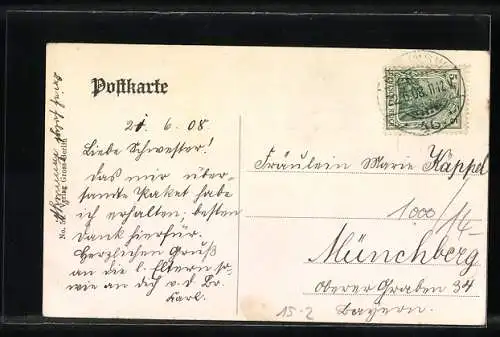 Postkarte
21. 6. 08
Liebe Schwester!
Das mir über-
sandte Paket habe
ich erhalten; besten
Dank hierfür.
Herzlichen Gruß
an die l. Eltern so-
wie an dich v. d. Br.
Karl.
Fräulein Marie Kappel
1000/14
Münchberg
Oberer Graben 34
Bayern.
15-2